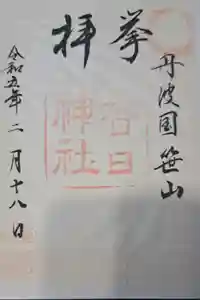 奉拝
丹波国笹山
春日
神社
令和五年二月十八日